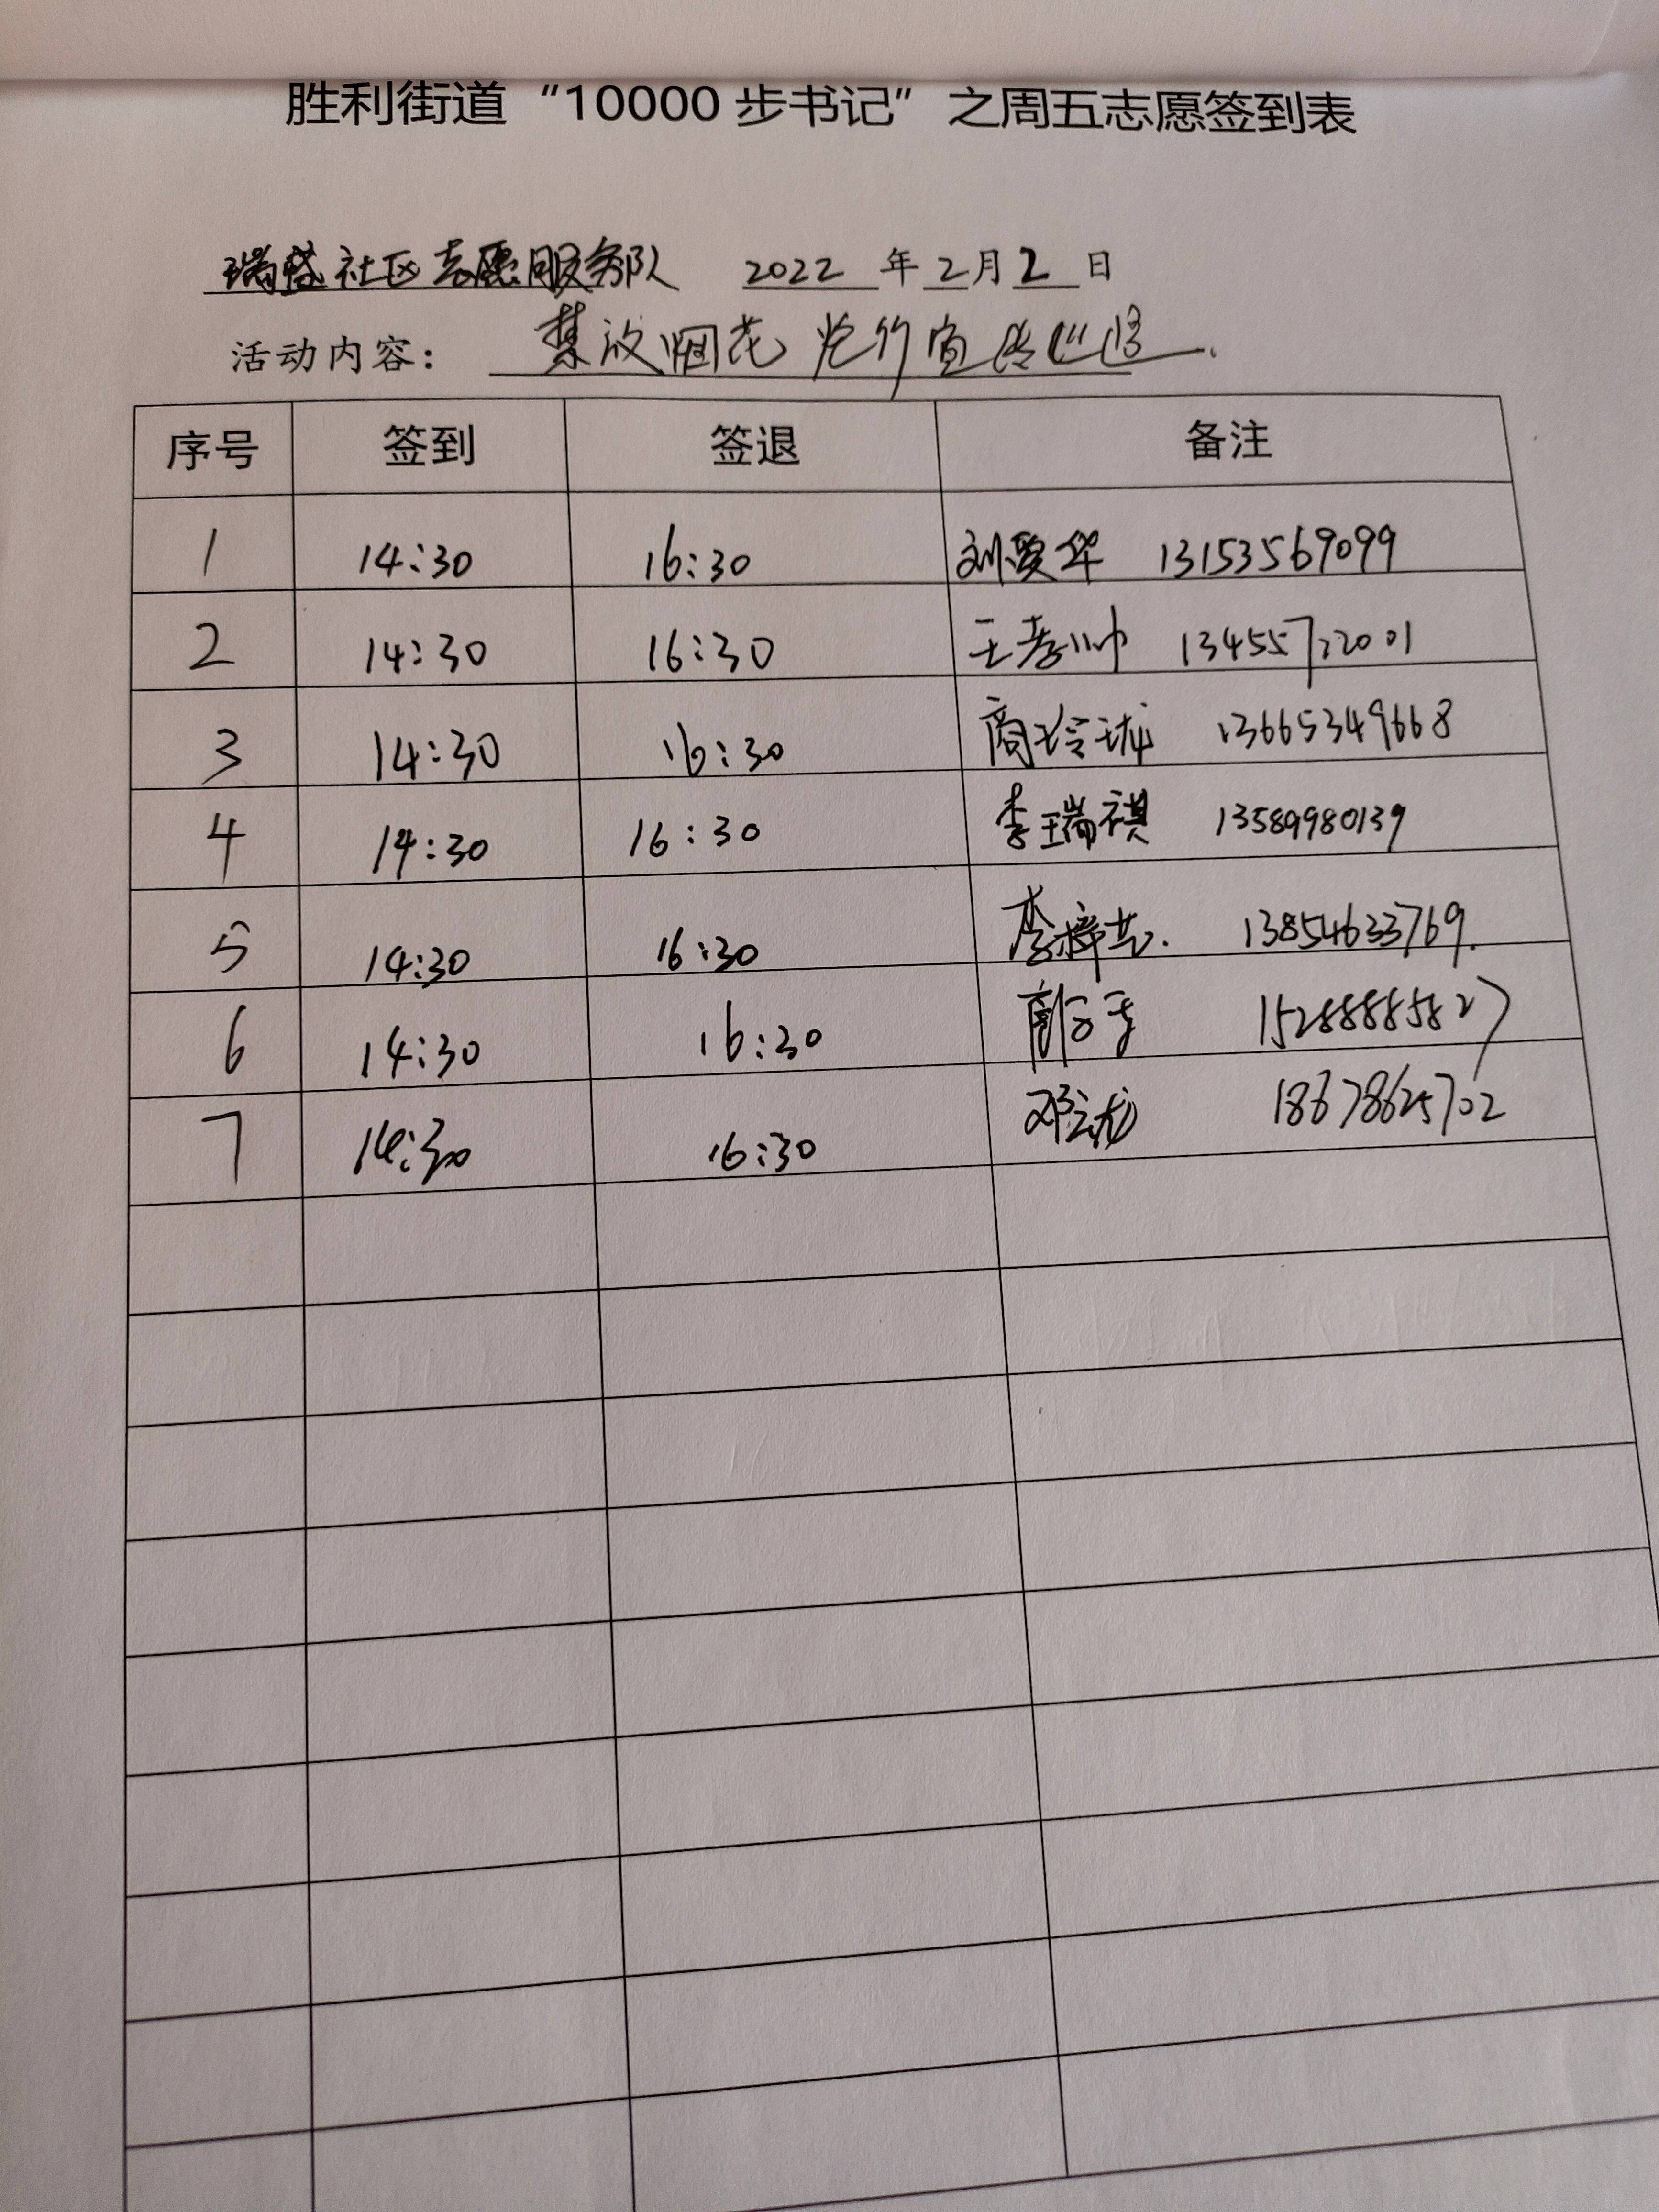 胜利街道“10000步书记”之周五志愿签到表
瑞盛社区志愿服务队 2022 年 2 月 2 日
活动内容： 禁放烟花炮竹宣传巡逻.
序号 签到 签退 备注
1 14:30 16:30 刘爱华 13153569099
2 14:30 16:30 王孝帅 13455722001
3 14:30 16:30 商玲珑 13665349668
4 14:30 16:30 李瑞祺 13589980139
5 14:30 16:30 李梓艺. 13854633769.
6 14:30 16:30 15288885827
7 14:30 16:30 邓云龙 18678625702